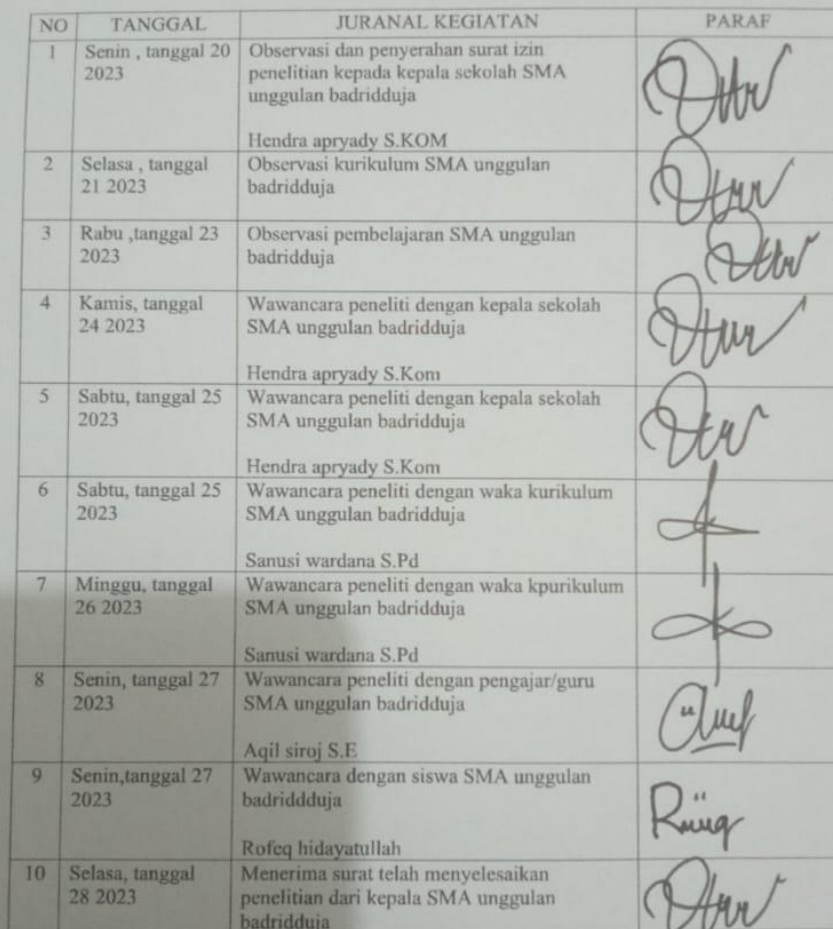 NO TANGGAL JURANAL KEGIATAN PARAF
1 Senin , tanggal 20 Observasi dan penyerahan surat izin
2023 penelitian kepada kepala sekolah SMA
unggulan badridduja
Hendra apryady S.KOM
2 Selasa , tanggal Observasi kurikulum SMA unggulan
21 2023 badridduja
3 Rabu ,tanggal 23 Observasi pembelajaran SMA unggulan
2023 badridduja
4 Kamis, tanggal Wawancara peneliti dengan kepala sekolah
24 2023 SMA unggulan badridduja
Hendra apryady S.Kom
5 Sabtu, tanggal 25 Wawancara peneliti dengan kepala sekolah
2023 SMA unggulan badridduja
Hendra apryady S.Kom
6 Sabtu, tanggal 25 Wawancara peneliti dengan waka kurikulum
2023 SMA unggulan badridduja
Sanusi wardana S.Pd
7 Minggu, tanggal Wawancara peneliti dengan waka kpurikulum
26 2023 SMA unggulan badridduja
Sanusi wardana S.Pd
8 Senin, tanggal 27 Wawancara peneliti dengan pengajar/guru
2023 SMA unggulan badridduja
Aqil siroj S.E
9 Senin,tanggal 27 Wawancara dengan siswa SMA unggulan
2023 badriddduja
Rofeq hidayatullah
10 Selasa, tanggal Menerima surat telah menyelesaikan
28 2023 penelitian dari kepala SMA unggulan
badridduja